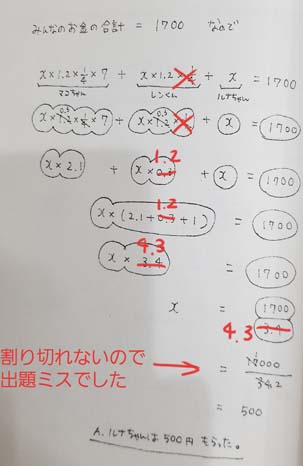 みんなのお金の合計 = 1700 なので
x×1.2×1/4×7 + x×1.2×1/4 + x = 1700
マコちゃん レンくん ルナちゃん
0.3 0.3
x×1.2×1/4×7 + x×1.2×1/4 + x = 1700
1.2
x×2.1 + x×0.3 + x = 1700
1.2
x×(2.1+0.3+1) = 1700
4.3
x×3.4 = 1700
x = 1700
4.3 3.4
割り切れないので
出題ミスでした
= 17000
34
= 500
A. ルナちゃんは500円もらった。